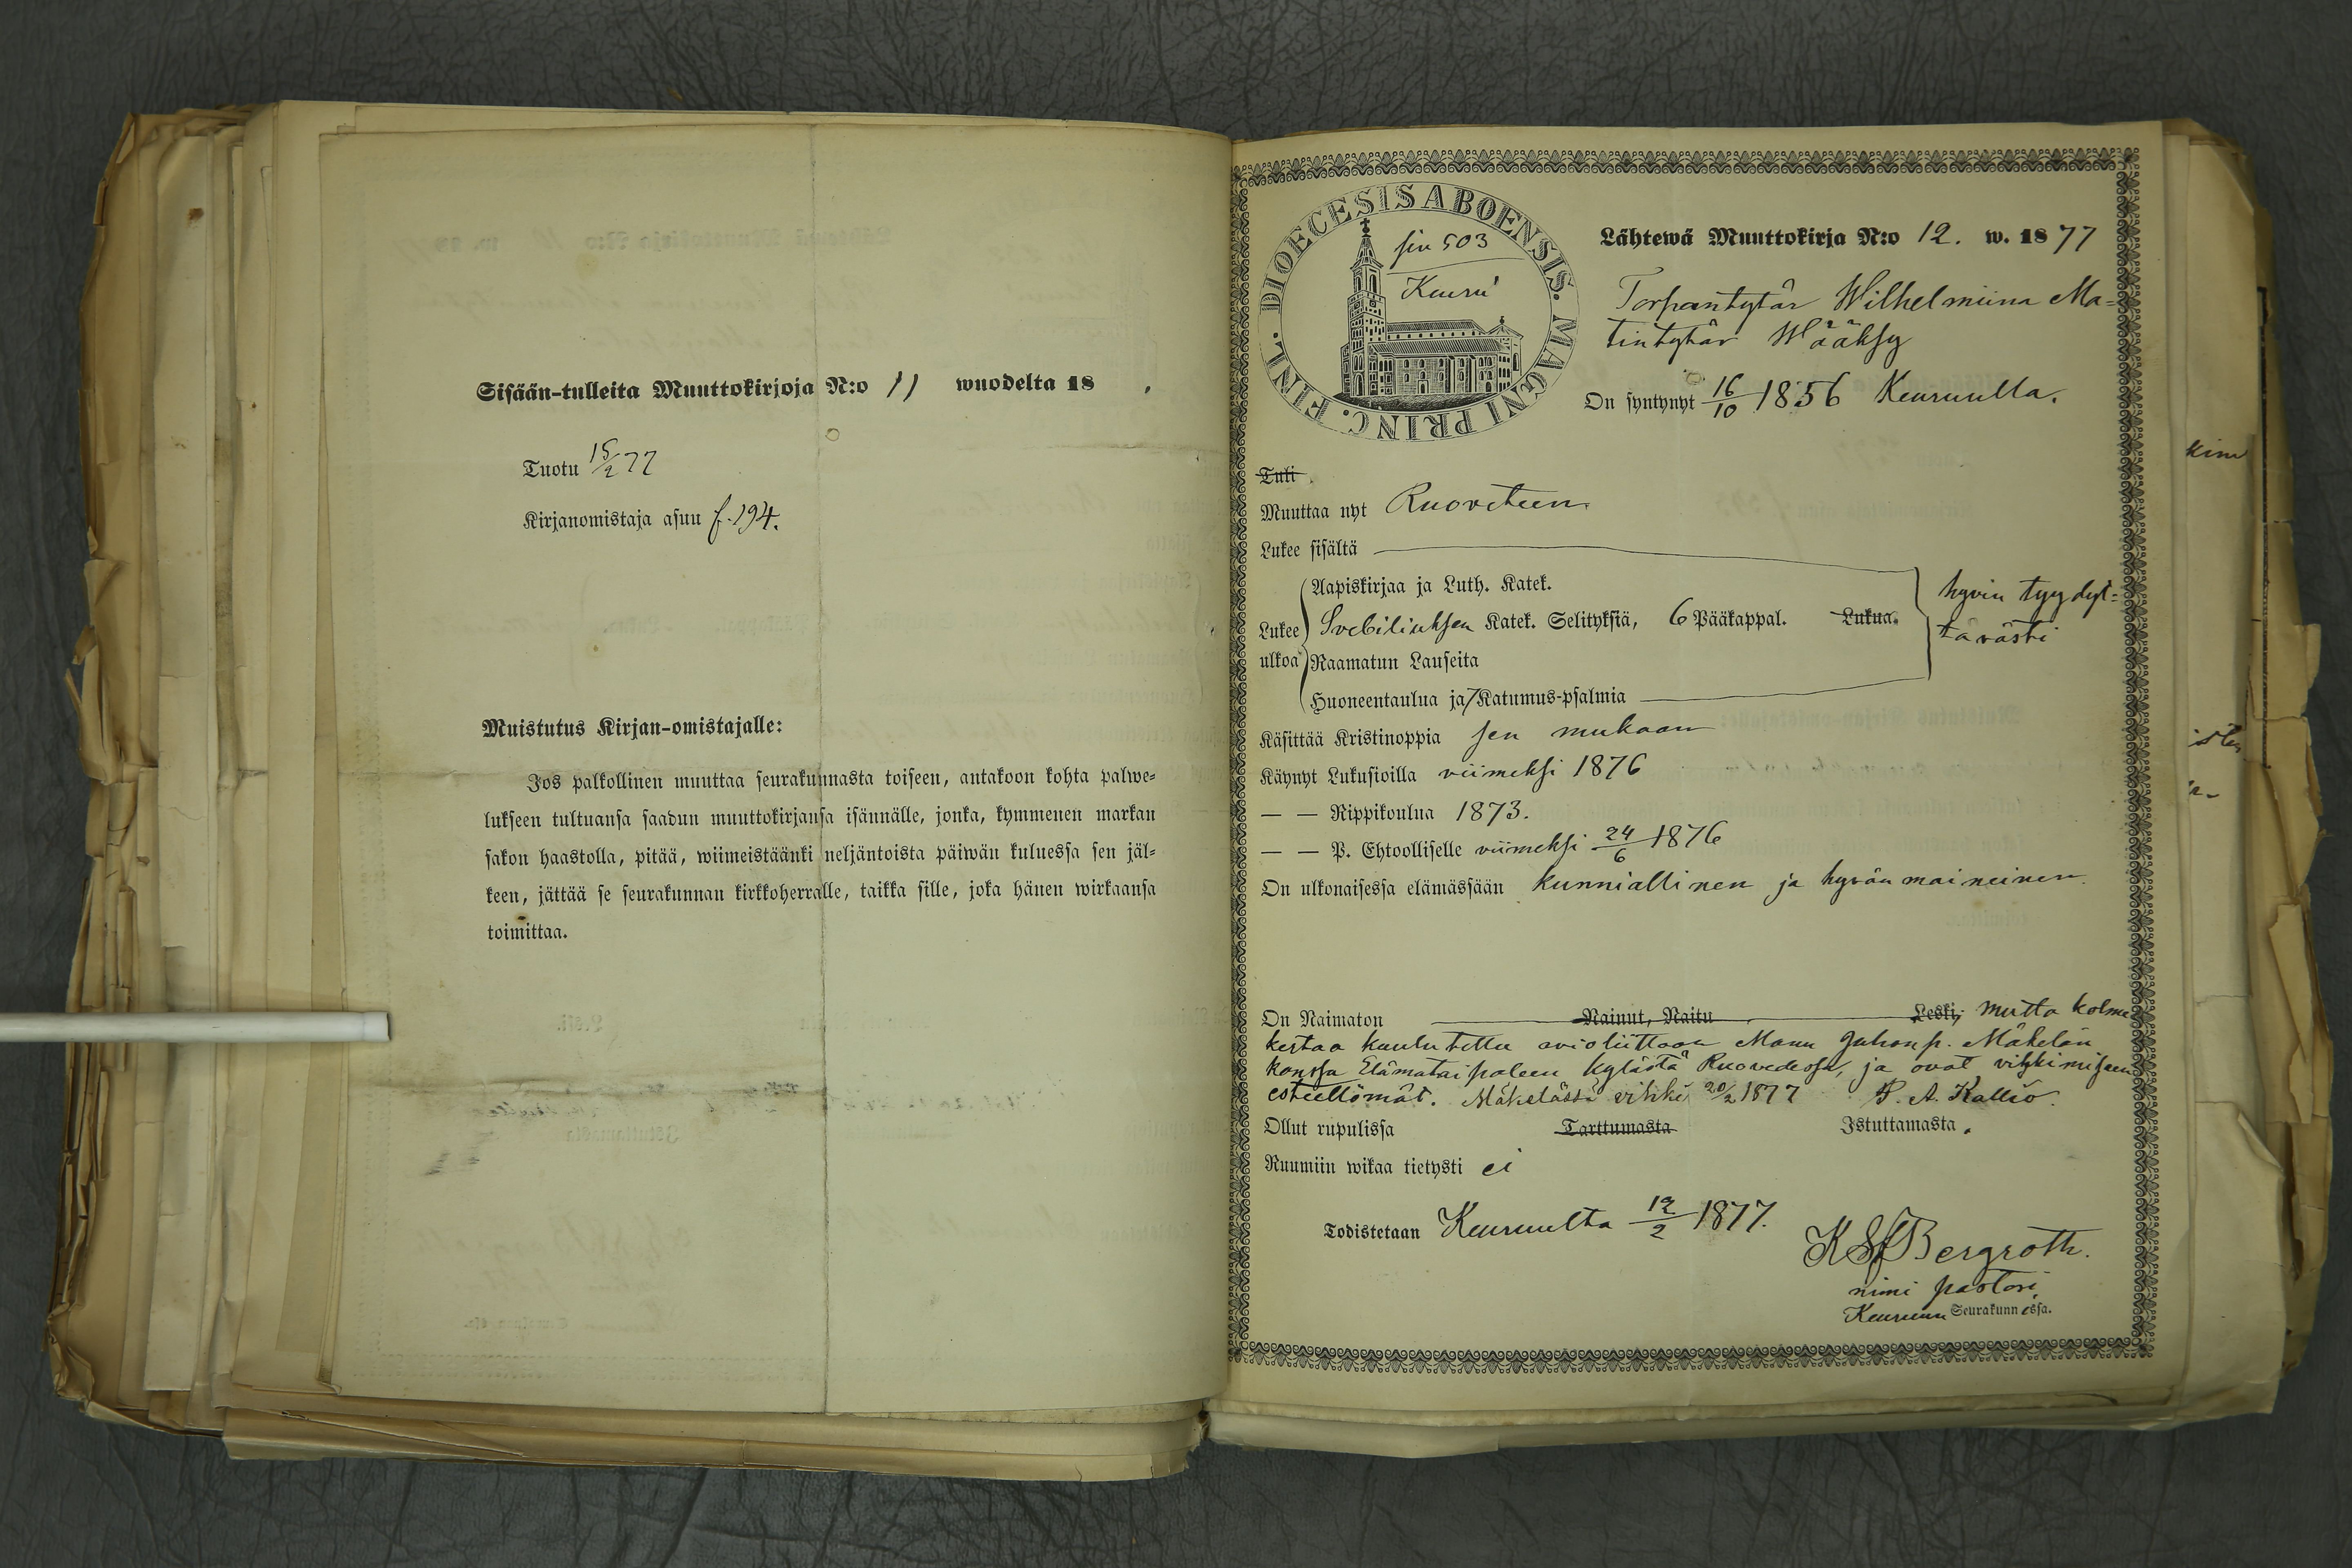 Sisään-tulleita Muuttokirjoja N:o 11 wuodelta 18 .
Tuotu 15/2 77
Kirjanomistaja asuu f. 194.
Muistutus Kirjan-omistajalle:
Jos palkollinen muuttaa seurakunnasta toiseen, antakoon kohta palwe-
lukseen tultuansa saadun muuttokirjansa isännälle, jonka, kymmenen markan
sakon haastolla, pitää, wiimeistäänki neljäntoista päiwän kuluessa sen jäl-
keen, jättää se seurakunnan kirkkoherralle, taikka sille, joka hänen wirkaansa
toimittaa.
DIOECESIS ABOENSIS. MAGNI PRINC. FINL.
siv 503
Keuru
Lähtewä Muuttokirja N:o 12. w. 1877
Torpantytär Wilhelmiina Ma-
tintytär Wääksy
On syntynyt 16/10 1856 Keuruulla.
Tuli
Muuttaa nyt Ruoveteen
Lukee sisältä
Aapiskirjaa ja Luth. Katek.
Lukee ulkoa Svebiliuksen Katek. Selityksiä, 6 Pääkappal. Lukua.
Raamatun Lauseita
Huoneentaulua ja 7 Katumus-psalmia
hyvin tyydyt-
tävästi
Käsittää Kristinoppia sen mukaan
Käynyt Lukusioilla viimeksi 1876
— — Rippikoulua 1873.
— — P. Ehtoolliselle viimeksi 24/6 1876
On ulkonaisessa elämässään kunniallinen ja hyvän maineinen
On Naimaton Nainut, Naitu Leski, mutta kolme
kertaa kuulutettu avioliittoon Manu Juhonp. Mäkelän
kanssa Elämätaipaleen kylästä Ruovedessä, ja ovat vihkimiseen
esteettömät. Mäkelässä vihki 20/2 1877 P. A. Kallio.
Ollut rupulissa Tarttumasta Istuttamasta.
Ruumiin wikaa tietysti ei
Todistetaan Keuruulta 12/2 1877.
Bergroth.
nimi pastori,
Keuruun Seurakunnassa.